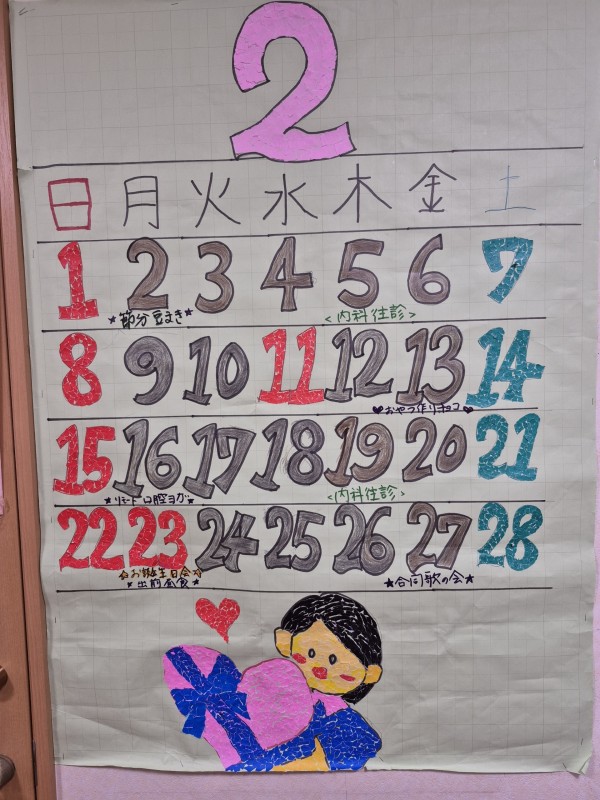 2
日 月 火 水 木 金 土
1 2 3 4 5 6 7
★節分豆まき★ <内科往診>
8 9 10 11 12 13 14
♥おやつ作りチョコ♥
15 16 17 18 19 20 21
★リモート口腔ヨガ★ <内科往診>
22 23 24 25 26 27 28
☆お誕生日会☆ ★合同歌の会★
★出前昼食★